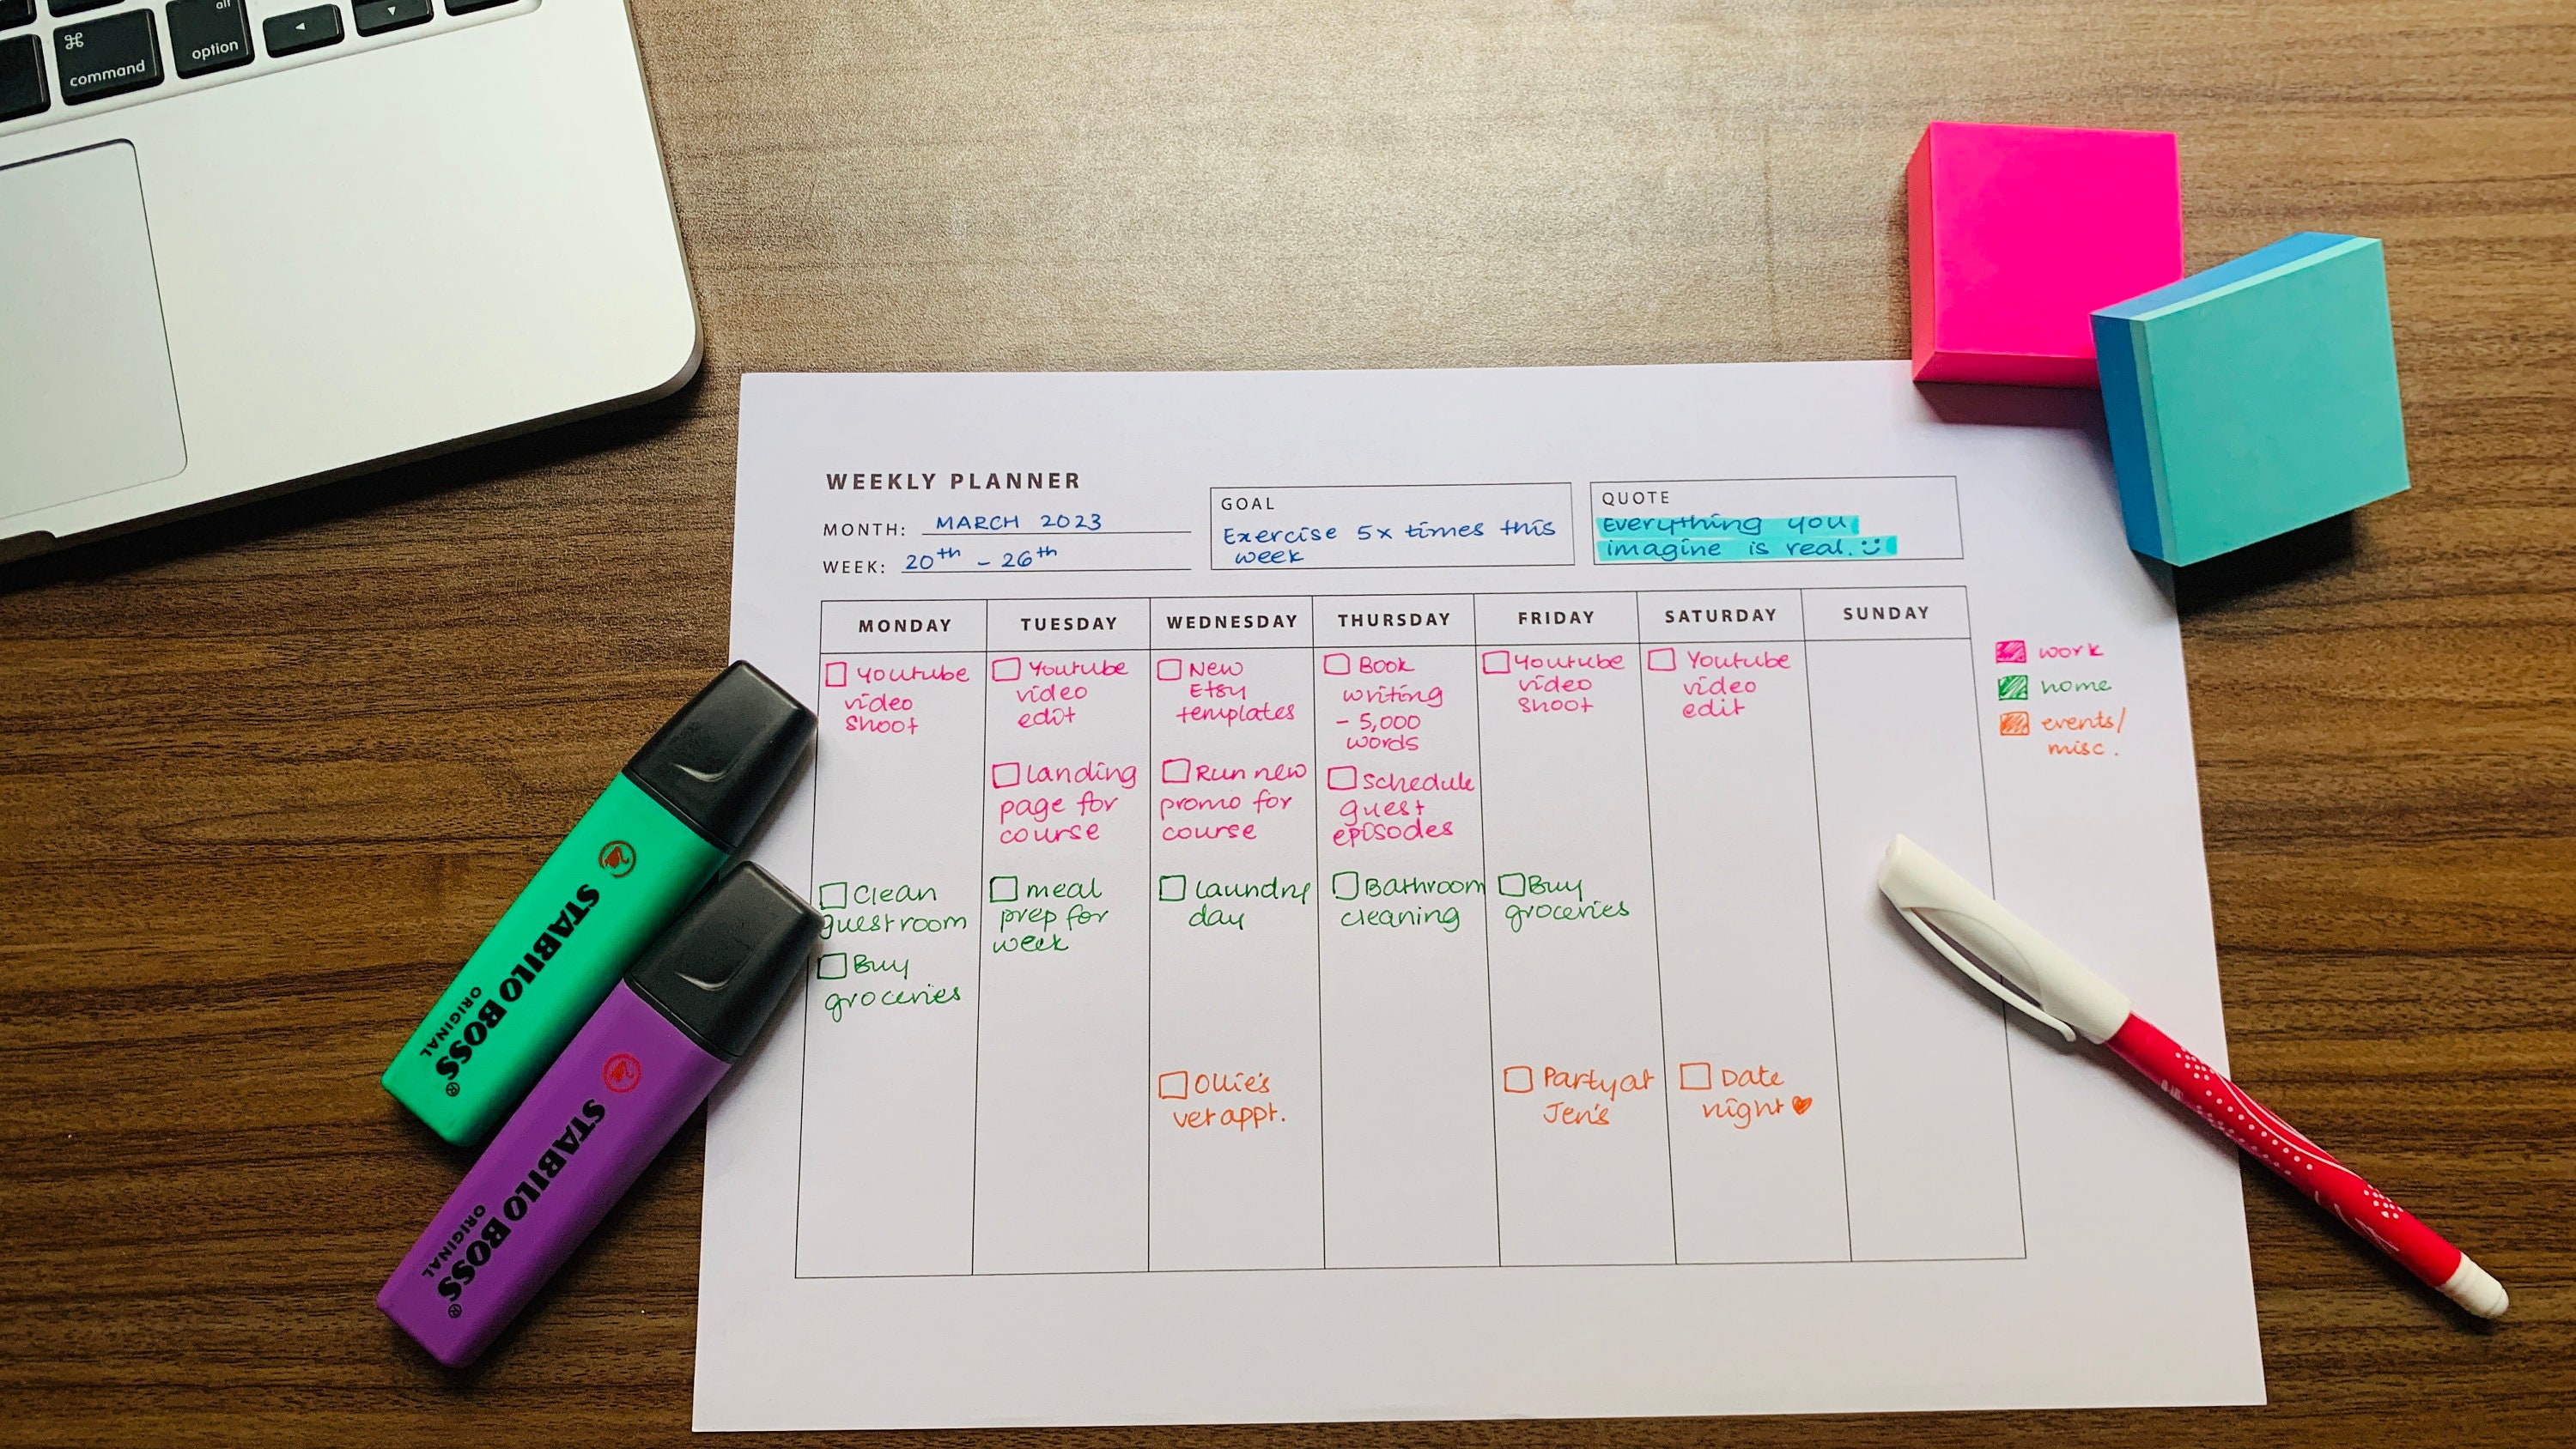 alt
⌘
command
option
◄
▼
WEEKLY PLANNER
MONTH: MARCH 2023
WEEK: 20th - 26th
GOAL
Exercise 5x times this
week
QUOTE
Everything you
imagine is real.
MONDAY
Youtube
video
shoot
Clean
guest room
Buy
groceries
TUESDAY
Youtube
video
edit
Landing
page for
course
meal
prep for
week
WEDNESDAY
New
Etsy
templates
Run new
promo for
course
Laundry
day
Ollie's
vet appt.
THURSDAY
Book
writing
- 5,000
words
Schedule
guest
episodes
Bathroom
cleaning
FRIDAY
Youtube
video
shoot
Buy
groceries
Party at
Jen's
SATURDAY
Youtube
video
edit
Date
night ♥
SUNDAY
work
home
events/
misc.
STABILO BOSS®
ORIGINAL
STABILO BOSS®
ORIGINAL